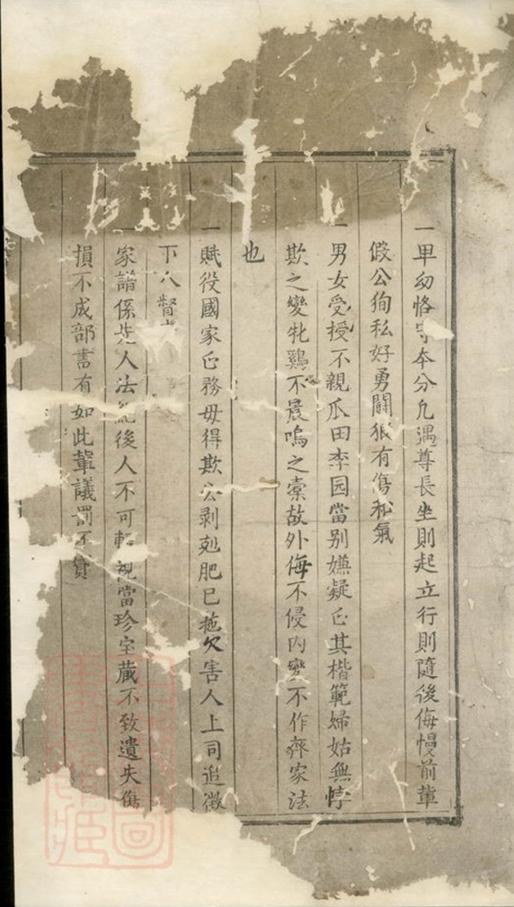 一卑幼恪守本分凡遇尊長坐則起立行則隨後侮慢前輩
假公狥私好勇鬪狠有傷和氣
一男女受授不親瓜田李园當别嫌疑正其楷範婦姑無悖
欺之變牝鷄不晨鳴之索故外侮不侵内變不作齊家法
也
一賦役國家正務毋得欺公剥剋肥己拖欠害人上司追徴
下人督
家譜係先人法紀後人不可輕視當珍宝藏不致遺失傷
損不成部書有如此輩議罰不貸